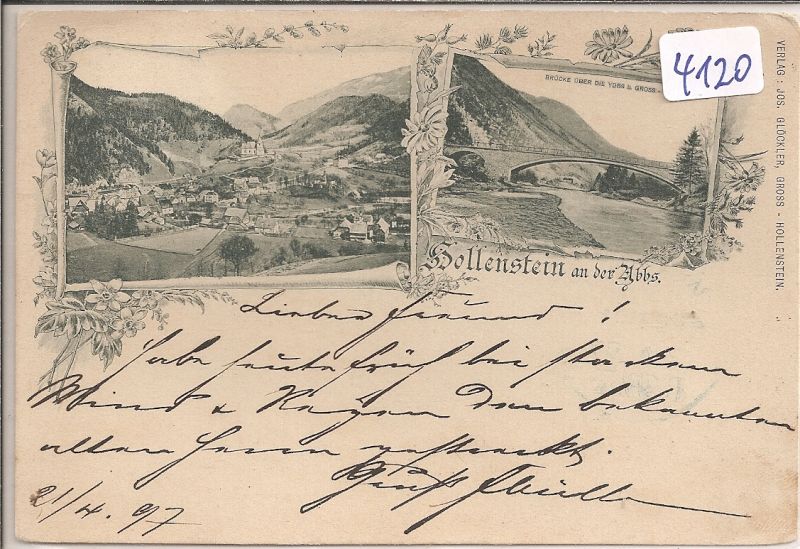 4120
BRÜCKE ÜBER DIE YBBS B. GROSS-
VERLAG: JOS. GLÖCKLER, GROSS-HOLLENSTEIN.
Hollenstein an der Ybbs.
Lieber Freund!
Habe heute früh bei starkem
Wind & Regen den bekannten
alten Herrn gestreckt.
Gruß
21/4. 97